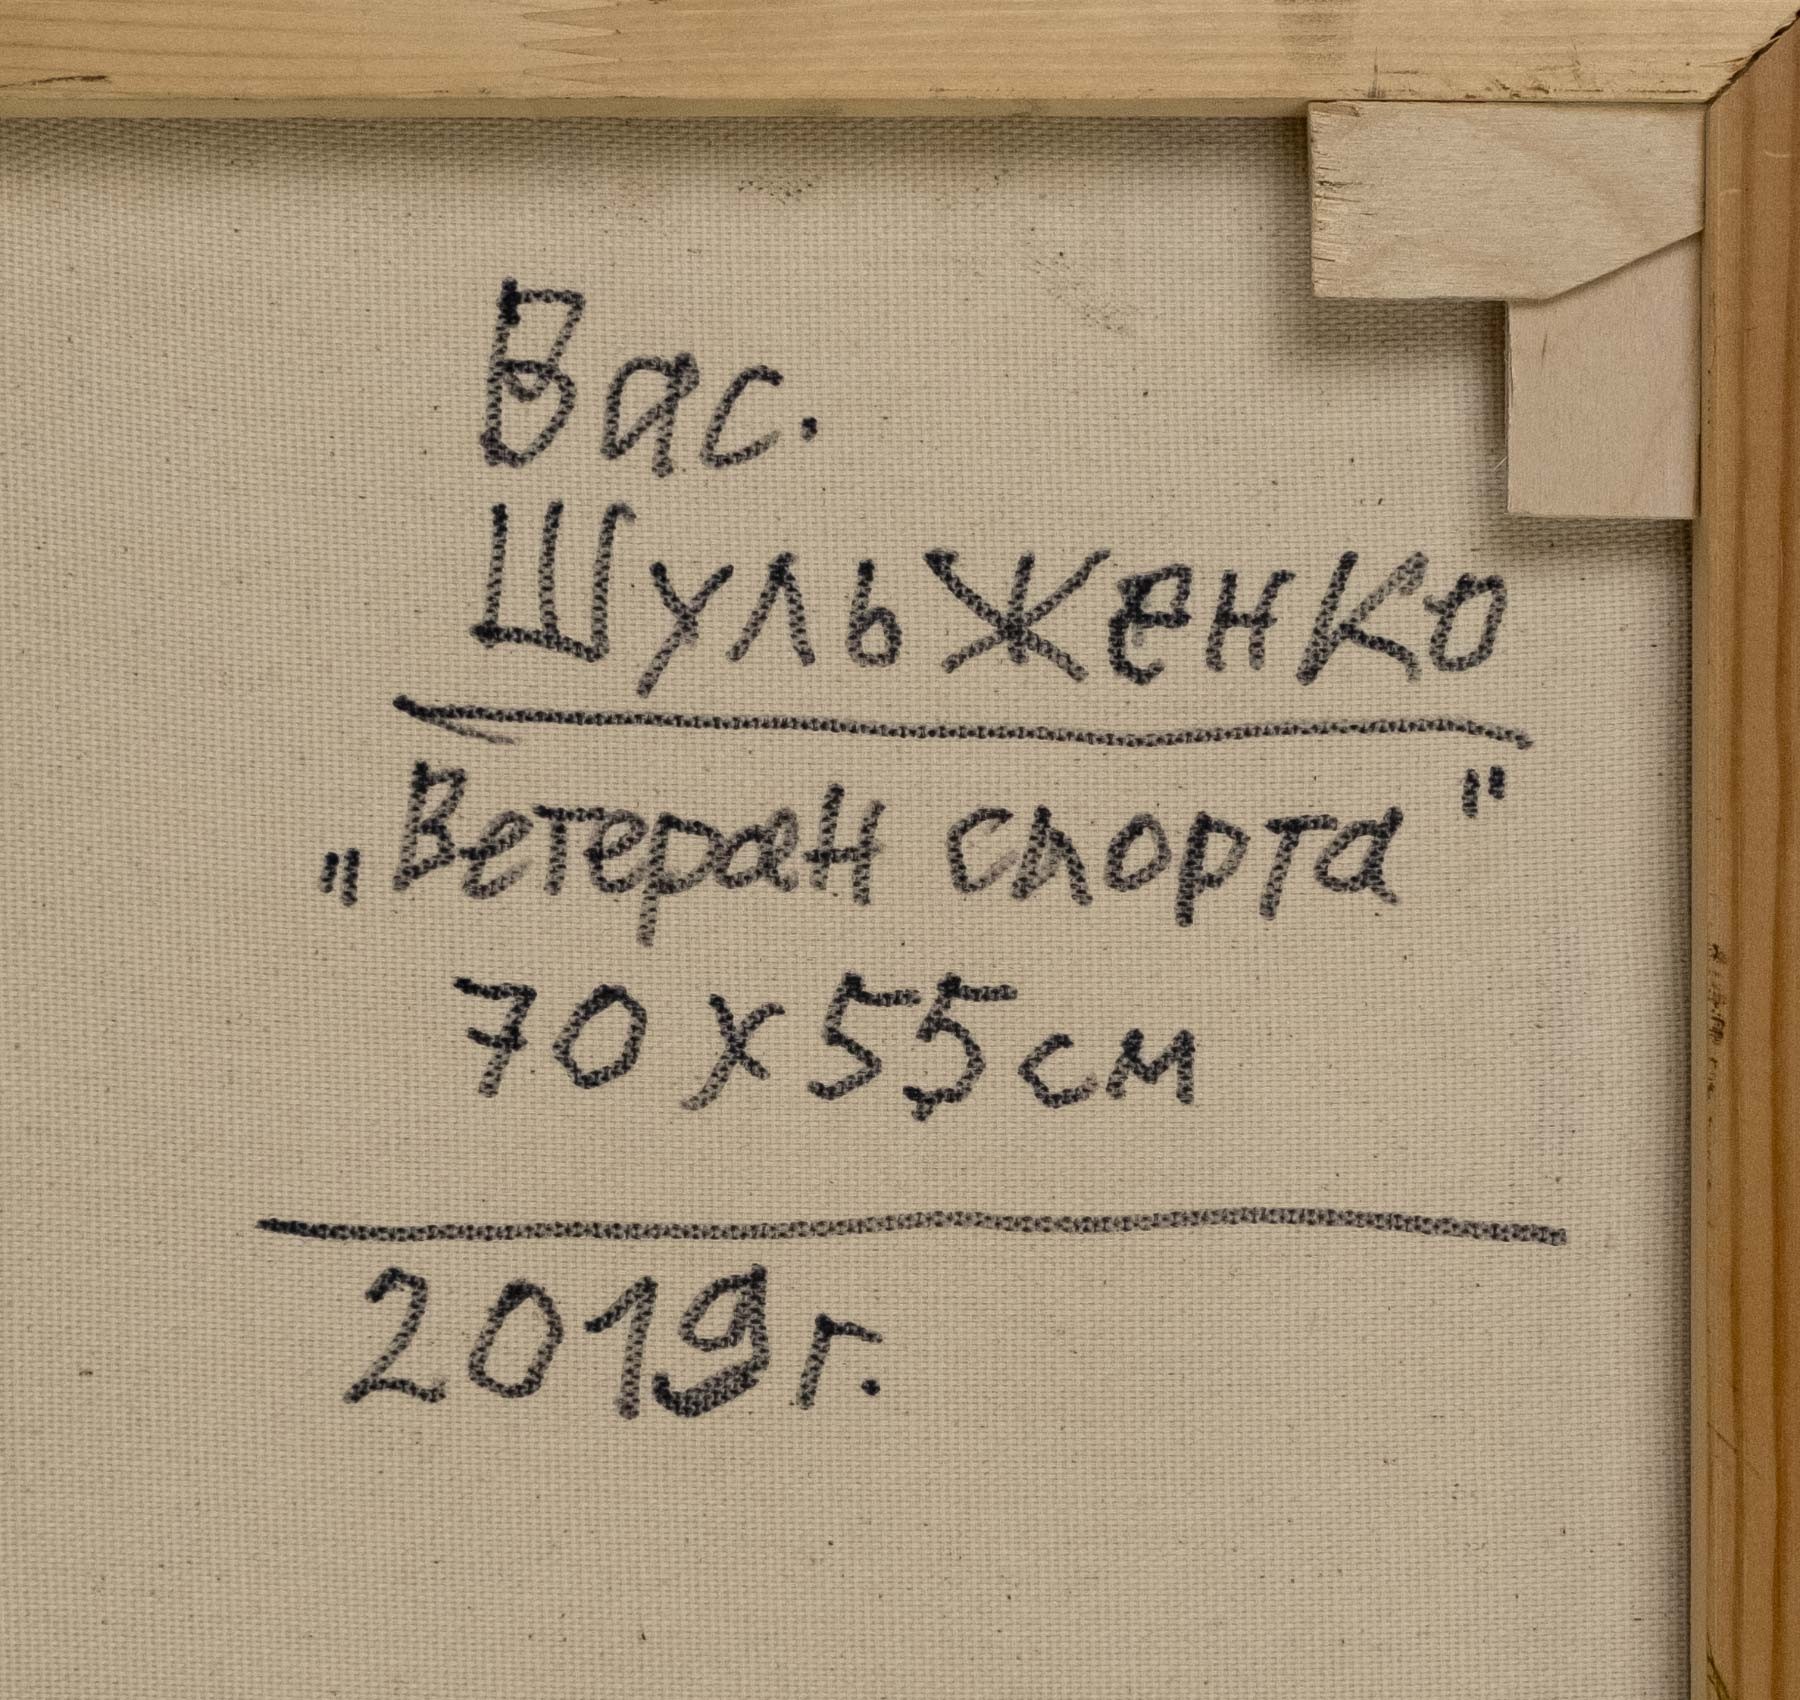 Вас.
Шульженко
„Ветеран спорта"
70 х 55 см
2019 г.